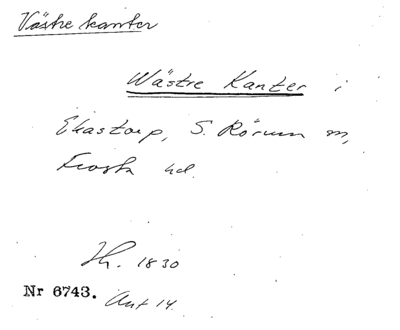 Västre kanter
Wästre Kanter i
Ekastorp, S. Rörum sn,
Frosta hd.
Jh. 1830
Nr 6743. Ant 14.